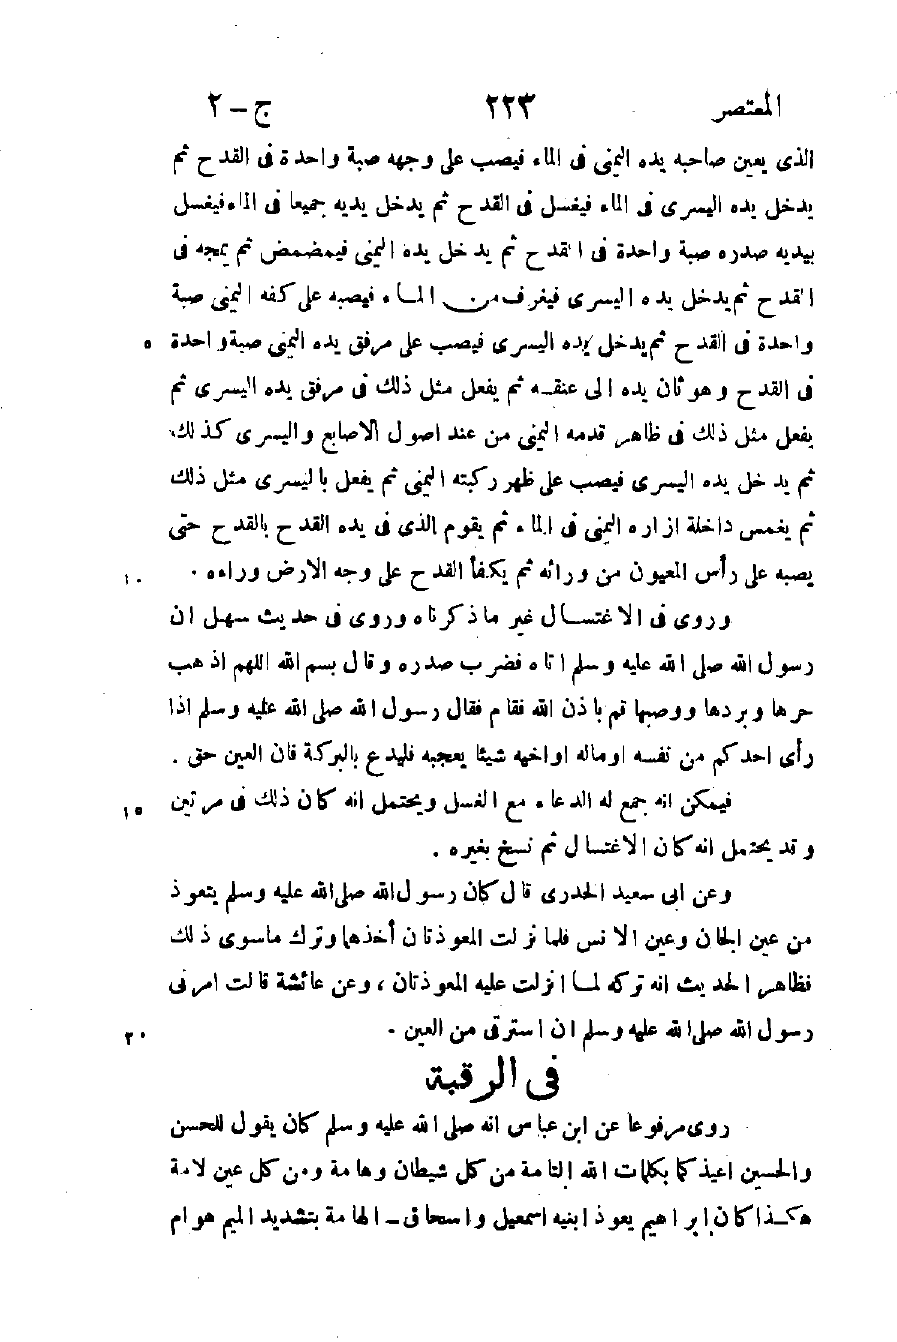 المعتصر ٢٢٣ ج – ٢
الذى يعين صاحبه يده اليمنى فى الماء فيصب على وجهه صبة واحدة فى القدح ثم
يدخل يده اليسرى فى الماء فيغسل فى القدح ثم يدخل يديه جميعا فى الماء فيغسل
بيديه صدره صبة واحدة فى القدح ثم يدخل يده اليمنى فيمضمض ثم يمجه فى
القدح ثم يدخل يده اليسرى فيغرف من الماء فيصبه على كفه اليمنى صبة
واحدة فى القدح ثم يدخل يده اليسرى فيصب على مرفق يده اليمنى صبة واحدة ٥
فى القدح وهو ثان يده الى عنقه ثم يفعل مثل ذلك فى مرفق يده اليسرى ثم
يفعل مثل ذلك فى ظاهر قدمه اليمنى من عند اصول الاصابع واليسرى كذلك
ثم يدخل يده اليسرى فيصب على ظهر ركبته اليمنى ثم يفعل باليسرى مثل ذلك
ثم يغمس داخلة ازاره اليمنى فى الماء ثم يقوم الذى فى يده القدح بالقدح حتى
يصبه على رأس المعيون من ورائه ثم يكفأ القدح على وجه الارض وراءه . ١٠
وروى فى الاغتسال غير ما ذكرناه وروى فى حديث سهل ان
رسول الله صلى الله عليه وسلم اتاه فضرب صدره وقال بسم الله اللهم اذهب
حرها وبردها ووصبها قم باذن الله فقام فقال رسول الله صلى الله عليه وسلم اذا
رأى احدكم من نفسه او ماله او اخيه شيئا يعجبه فليدع بالبركة فان العين حق .
فيمكن انه جمع له الدعاء مع الغسل ويحتمل انه كان ذلك فى مرتين ١٥
وقد يحتمل انه كان الاغتسال ثم نسخ بغيره .
وعن ابى سعيد الخدرى قال كان رسول الله صلى الله عليه وسلم يتعوذ
من عين الجان وعين الانس فلما نزلت المعوذتان أخذها وترك ما سوى ذلك
فظاهر الحديث انه تركه لما انزلت عليه المعوذتان ، وعن عائشة قالت امرنى
رسول الله صلى الله عليه وسلم ان استرقى من العين . ٢٠
فى الرقية
روى مرفوعا عن ابن عباس انه صلى الله عليه وسلم كان يقول للحسن
والحسين اعيذكما بكلمات الله التامة من كل شيطان وهامة ومن كل عين لامة
هكذا كان ابراهيم يعوذ ابنيه اسمعيل واسحاق – الهامة بتشديد الميم هوام